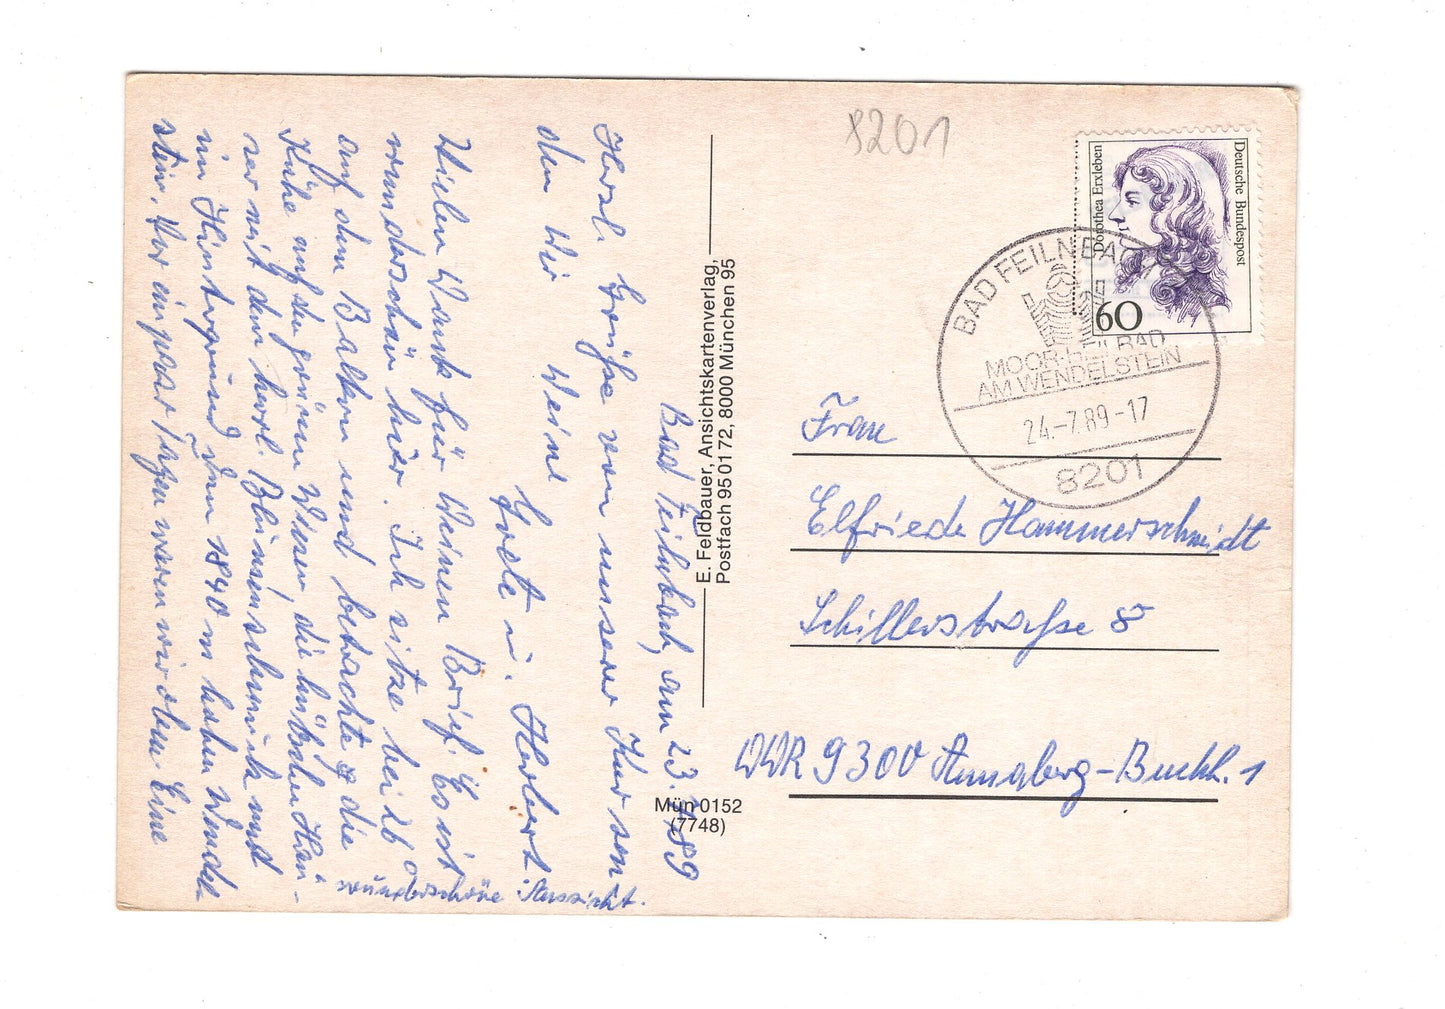 Bad Feilnbach, am 23.7.89
Herzl. Grüße von unserer Kur sen
den Dir Deine
Grete u. Herbert.
Vielen Dank für Deinen Brief. Es ist
wunderschön hier. Ich sitze bei 26°
auf dem Balkon und betrachte die
Kühe auf den grünen Wiesen, die hübschen Häu-
ser mit dem herrl. Blumenschmuck und
im Hintergrund den 1840 m hohen Wendel-
stein. Vor ein paar Tagen waren wir oben. Eine
wunderschöne Aussicht.
E. Feldbauer, Ansichtskartenverlag,
Postfach 950172, 8000 München 95
Mün 0152
(7748)
8201
Deutsche Bundespost
Dorothea Erxleben
60
BAD FEILNBA
MOOR-HEILBAD
AM WENDELSTEIN
24.-7.89-17
8201
Frau
Elfriede Hammerschmidt
Schillerstraße 8
DDR 9300 Annaberg-Buchh. 1